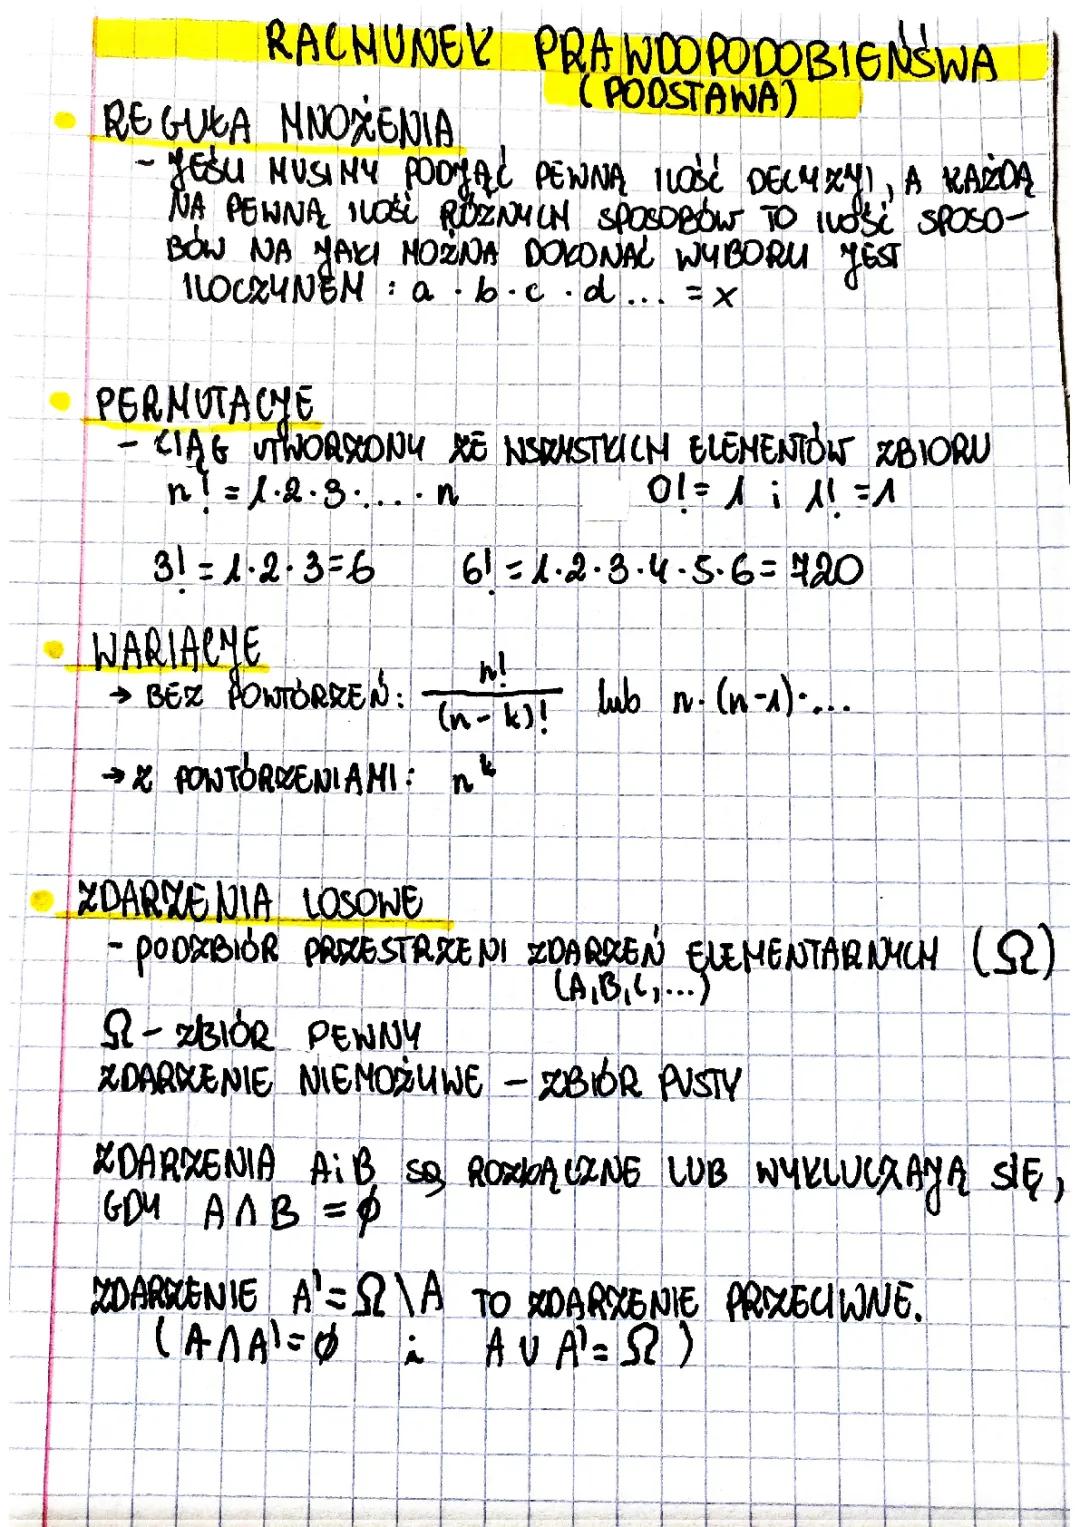 RACHUNEK PRAWDOPODOBIEŃSWA
(PODSTAWA)
REGUŁA MNOŻENIA
- JEŚLI MUSIMY PODJĄĆ PEWNĄ ILOŚĆ DECYZYJI, A KAŻDĄ
NA PEWNĄ ILOŚĆ RÓŻNYCH SPOSOBÓW TO ILOŚĆ SPOSO-
BÓW NA JAKI MOŻNA DOKONAĆ WYBORU JEST
ILOCZYNEM : a · b · c · d ... = x
PERMUTACJE
- CIĄG UTWORZONY ZE WSZYSTKICH ELEMENTÓW ZBIORU
n! = 1·2·3·... · n 0! = 1 i 1! = 1
3! = 1·2·3=6 6! = 1·2·3·4·5·6 = 720
WARIACJE
→ BEZ POWTÓRZEŃ: n!/(n-k)! lub n·(n-1)·...
→ Z POWTÓRZENIAMI: n^k
ZDARZENIA LOSOWE
- PODZBIÓR PRZESTRZENI ZDARZEŃ ELEMENTARNYCH (Ω)
(A,B,C,...)
Ω - ZBIÓR PEWNY
ZDARZENIE NIEMOŻLIWE - ZBIÓR PUSTY
ZDARZENIA A i B są ROZŁĄCZNE LUB WYKLUCZAJĄ SIĘ,
GDY A ∩ B = ∅
ZDARZENIE A' = Ω \ A TO ZDARZENIE PRZECIWNE.
(A ∩ A' = ∅ i A ∪ A' = Ω)